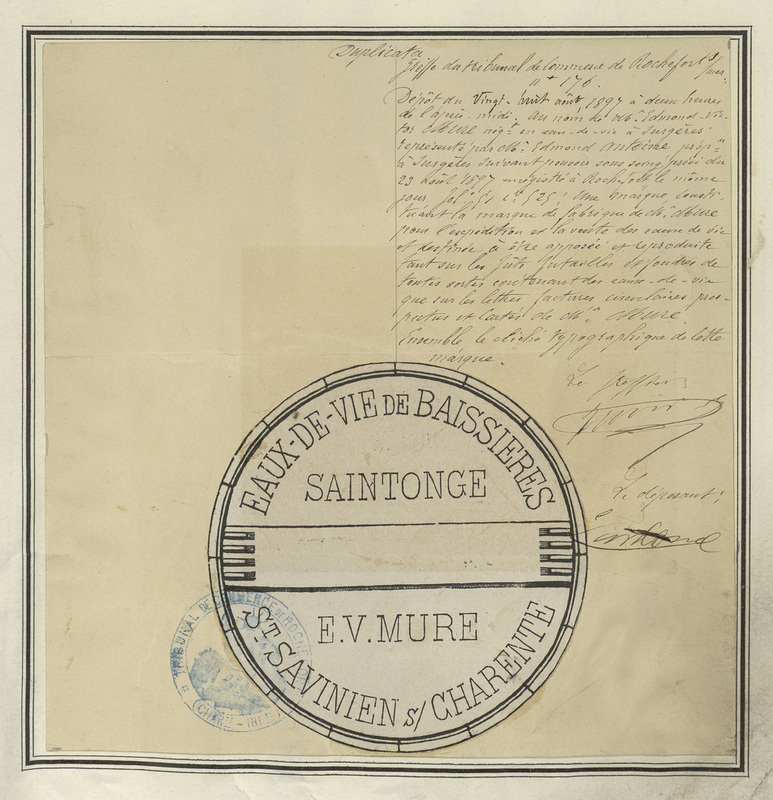 Duplicata
Greffe du tribunal de Commerce de Rochefort s/mer.
n° 176.
Dépôt du vingt-huit août 1897 à deux heures
de l'après-midi. Au nom de Mr. Edmond-Vic-
tor Mure négt en eau-de-vie à Surgères
représenté par Mr. Edmond Antoine propre
à Surgères suivant pouvoir sous seing privé du
23 août 1897 enregistré à Rochefort le même
jour fol. 51 cs 525; Une marque, consti-
tuant la marque de fabrique de Mr. Mure
pour l'expédition et la vente des eaux de vie
et destinée à être apposée et reproduite
tant sur les fûts futailles et fondres de
toutes sortes contenant des eaux-de-vie
que sur les lettres, factures circulaires pros-
pectus et Cartes de Mr. Mure.
Ensemble le cliché typographique de cette
marque.
Le greffier
Le déposant;
EAUX-DE-VIE DE BAISSIERES
SAINTONGE
E.V. MURE
ST. SAVINIEN S/ CHARENTE
TRIBUNAL DE COMMERCE DE ROCHEFORT
(CHARTE-INFRE)